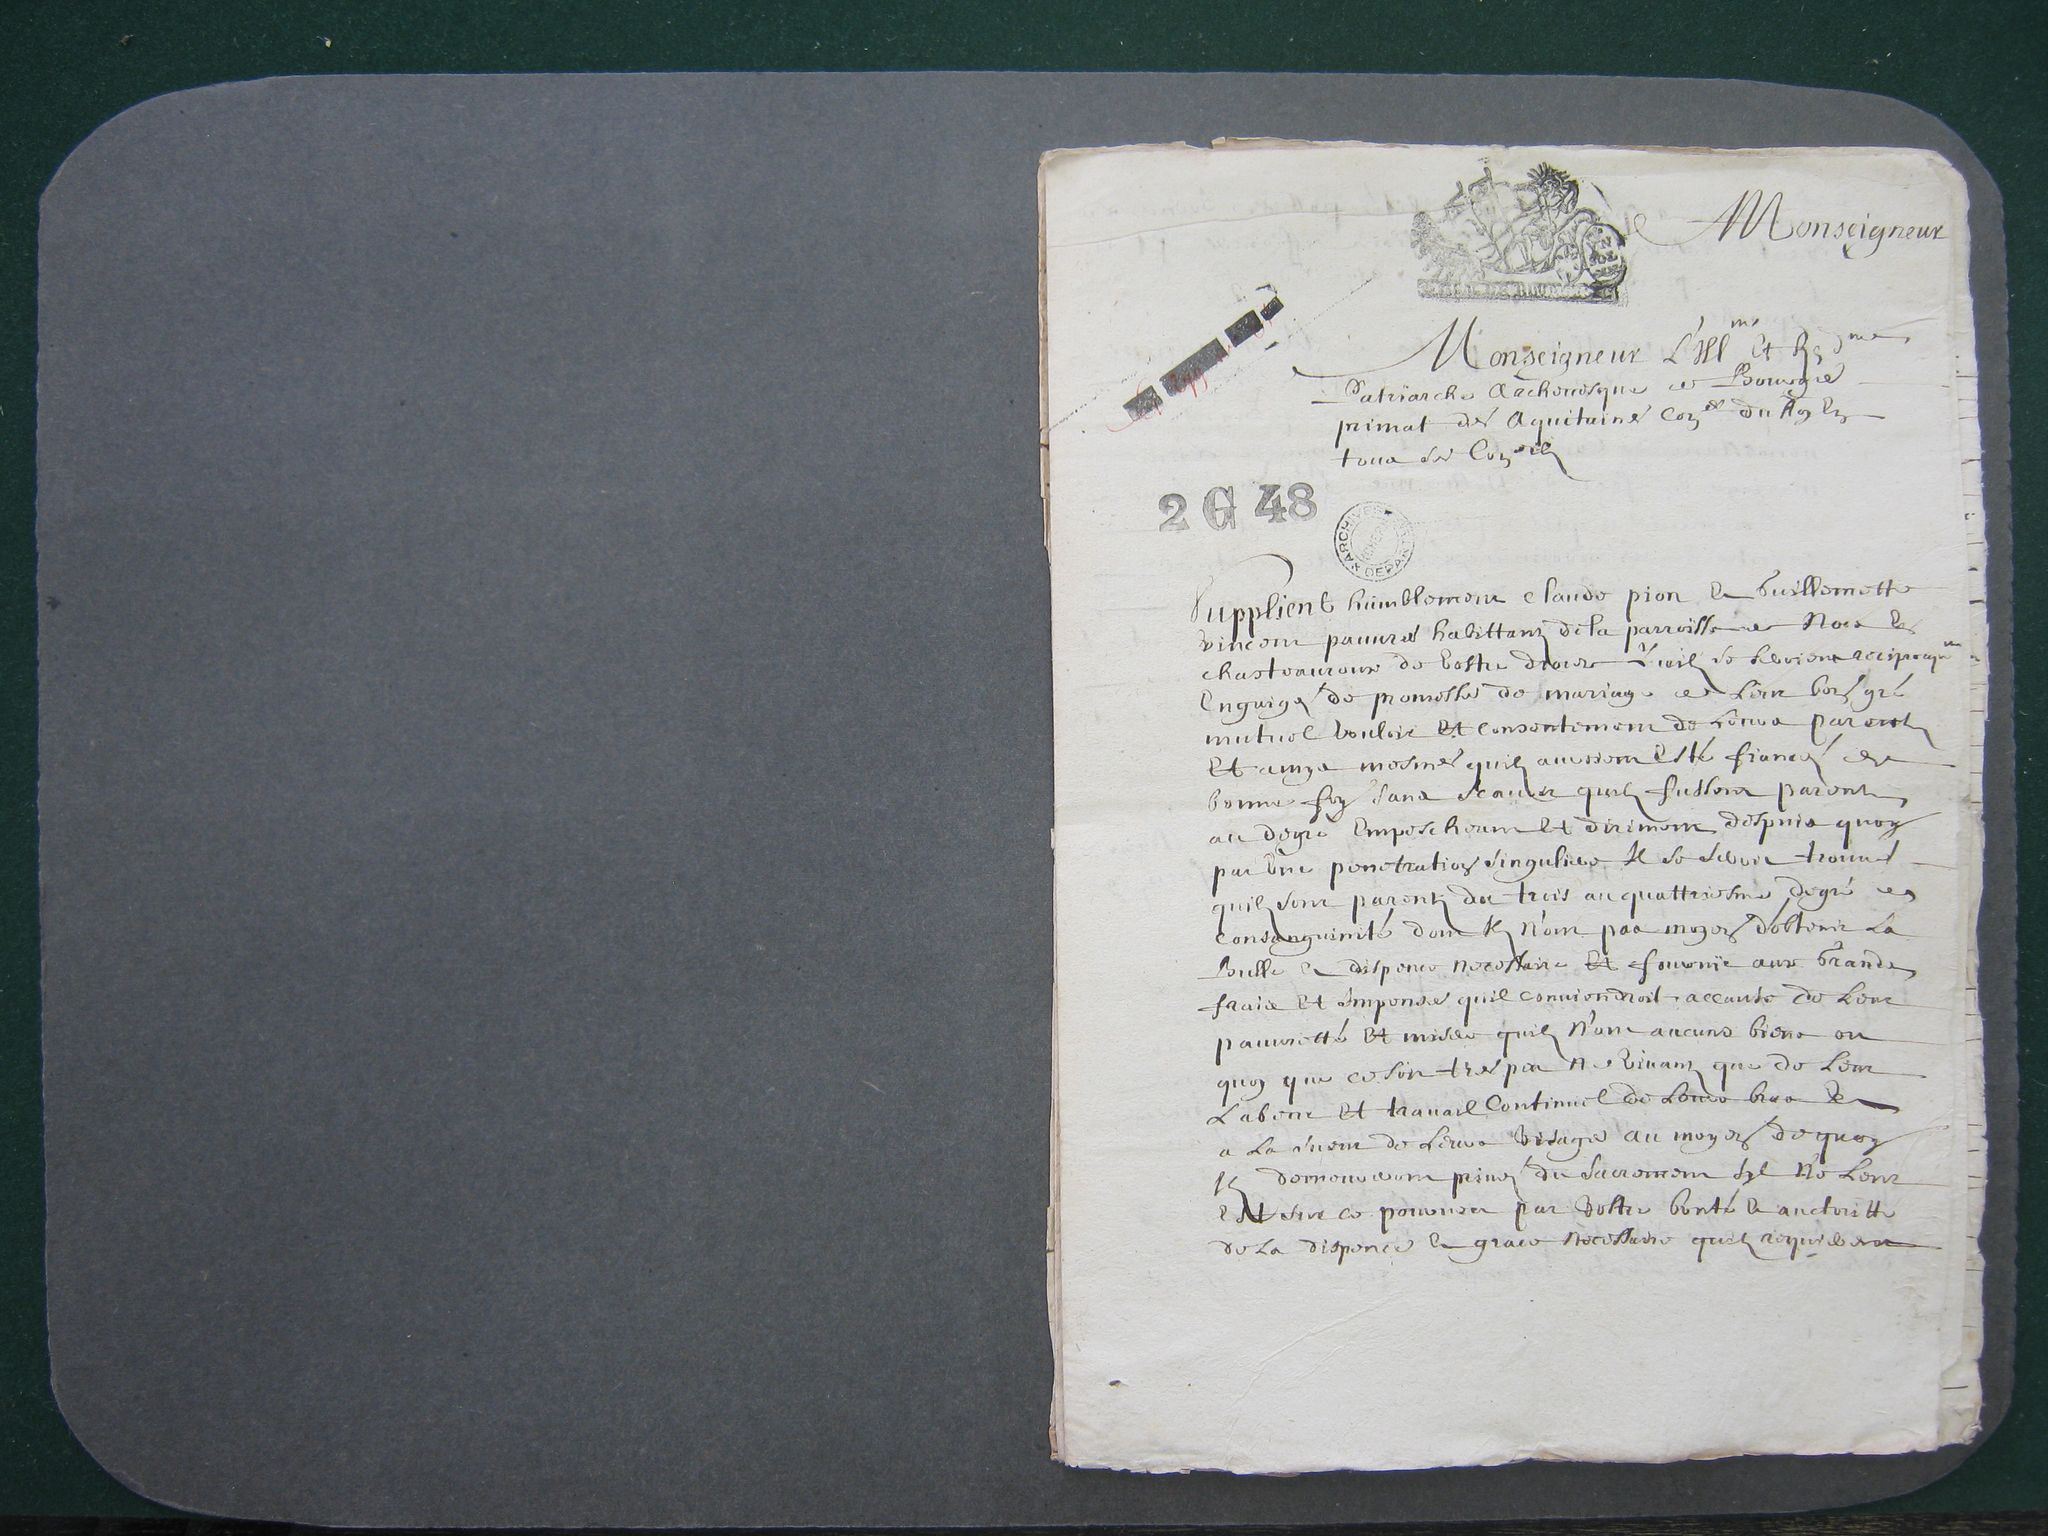 Monseigneur
Monseigneur L'Ill^me Et R^me
Patriarche Archevesque de Bourges
primat des Aquitaines Con^er du Roy En
tous ses Con^eils
2 G 48
ARCHIVES DEPART
Supplient humblement Claude pion Et Guillemette
Vincent pauvres habittans de la parroisse de
chasteauroux de Vostre diocese quilz se seroient reciproquem^t
Engaiges de promesses de mariage de Leur bon gré
mutuel Vouloir Et consentement de Leurs parents
Et amys mesmes quilz auroient Esté fiancés de
bonne foy sans scavoir quilz fussent parents
au degré Empeschant Et dirimant despuis quoy
par Une penetration singuliere Il se seroit trouvé
quilz sont parents du trois au quattriesme degré de
consanguinité dont Ilz N'ont pas moyen d'obtenir La
Bulle de dispence necessaire Et fournir aux Grands
frais Et Impenses quil conviendroit accause de Leur
pauvretté Et misere quilz N'ont aucuns biens ou
quoy que ce soit tres peu Ne Vivants que de Leur
Labeur Et travail Continuel de Leurs bras Et
a La sueur de Leurs Visages au moyen de quoy
Ilz demeureront privez du Sacrement Syl Ne Leur
Est sur ce pourveu par Vostre bonté Et auctoritté
de La dispence Et grace Necessaire quilz requierent